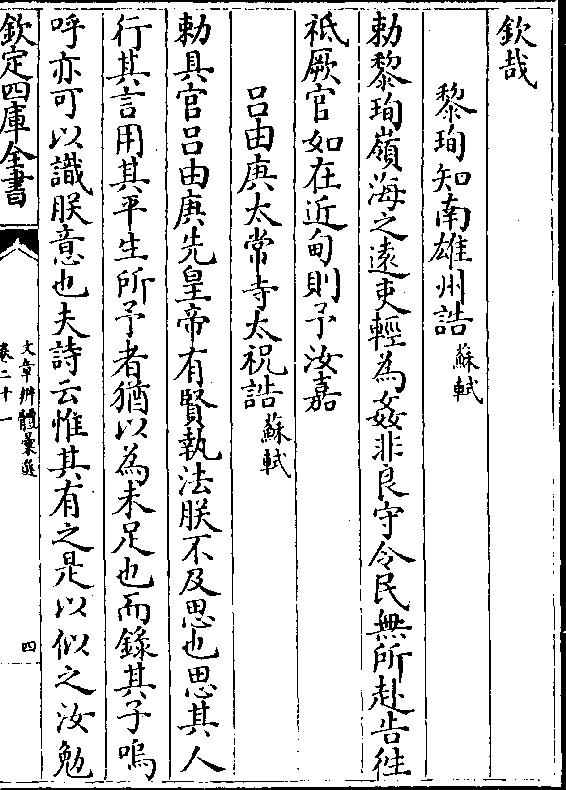 欽哉
黎珣知南雄州誥 蘇軾
勅黎珣嶺海之遠吏輕為姦非良守令民無所赴告徃
祗厥官如在近甸則予汝嘉
呂由庚太常寺太祝誥 蘇軾
勅具官呂由庚先皇帝有賢執法朕不及思也思其人
行其言用其平生所予者猶以為未足也而錄其子嗚
呼亦可以識朕意也夫詩云惟其有之是以似之汝勉
欽定四庫全書
文章辨體彚選
卷二十一
四